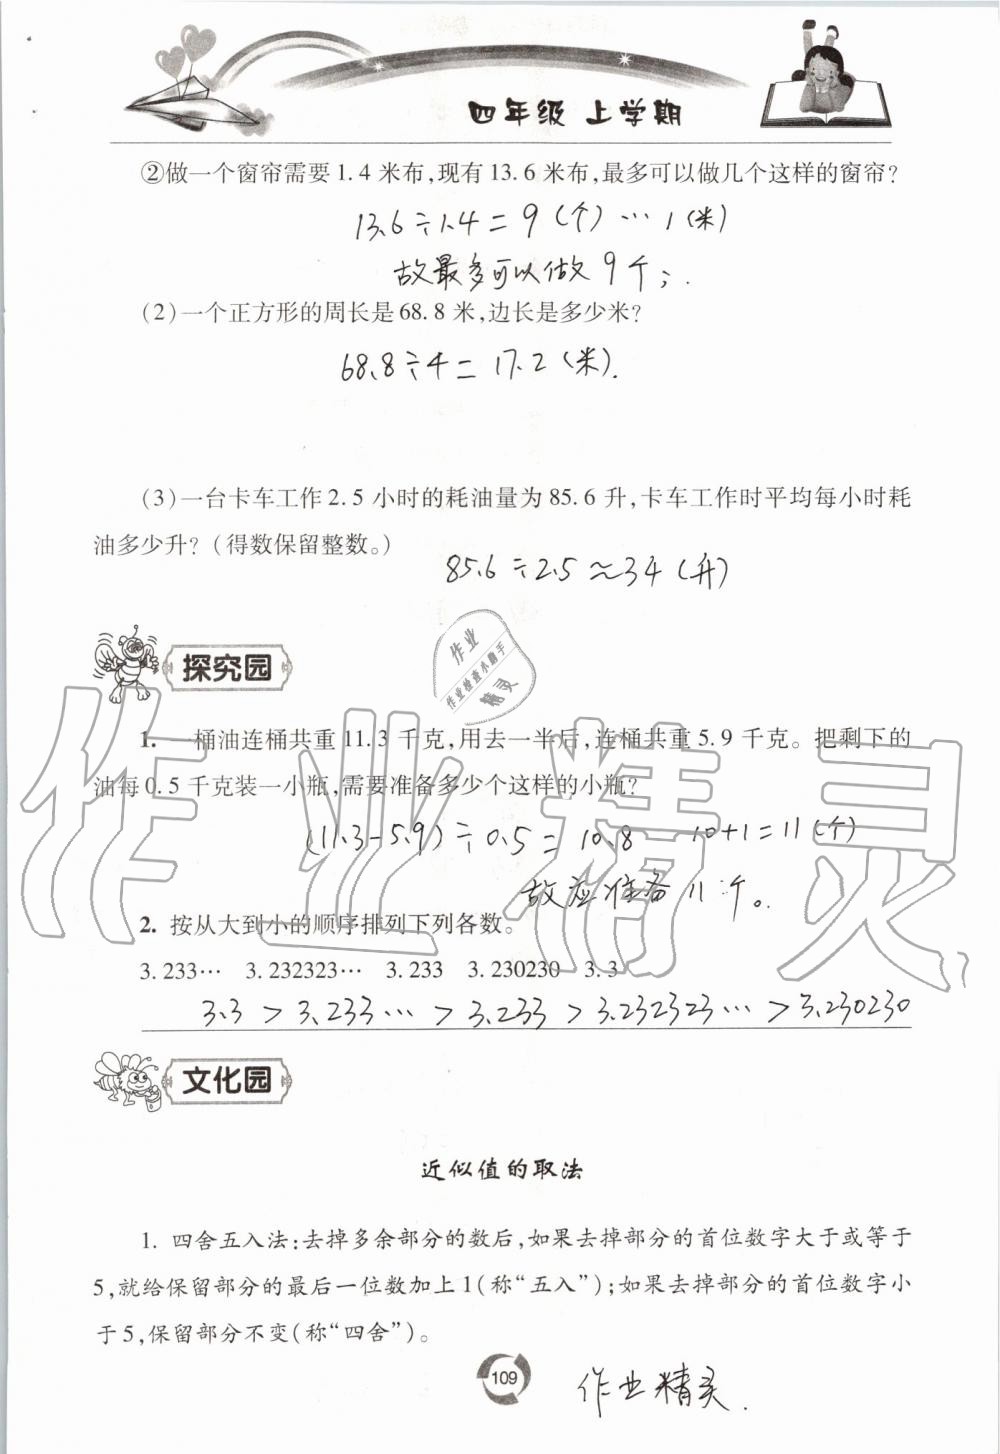 四年级 上学期
②做一个窗帘需要1.4米布,现有13.6米布,最多可以做几个这样的窗帘?
13.6÷1.4=9(个)…1(米)
故最多可以做9个;.
(2)一个正方形的周长是68.8米,边长是多少米?
68.8÷4=17.2(米).
(3)一台卡车工作2.5小时的耗油量为85.6升,卡车工作时平均每小时耗
油多少升?(得数保留整数。)
85.6÷2.5≈34(升)
作业
作业检查小助手
精灵
探究园
1. 一桶油连桶共重11.3千克,用去一半后,连桶共重5.9千克。把剩下的
油每0.5千克装一小瓶,需要准备多少个这样的小瓶?
(11.3-5.9)÷0.5=10.8 10+1=11(个)
故应准备11个。
作业精灵
2. 按从大到小的顺序排列下列各数。
3.233… 3.232323… 3.233 3.230230 3.3
3.3>3.233…>3.233>3.232323…>3.230230
文化园
近似值的取法
1. 四舍五入法:去掉多余部分的数后,如果去掉部分的首位数字大于或等于
5,就给保留部分的最后一位数加上1(称“五入”);如果去掉部分的首位数字小
于5,保留部分不变(称“四舍”)。
109
作业精灵.